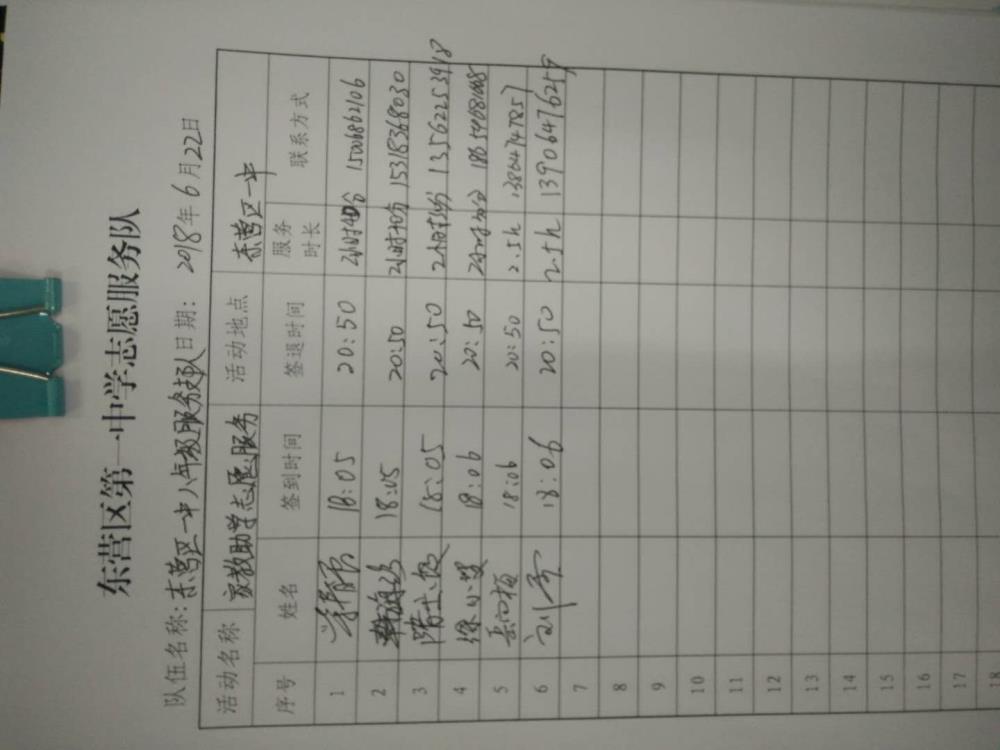 东营区第一中学志愿服务队
队伍名称：东营区一中八年级服务支队 日期： 2018年6月22日
活动名称 家教助学志愿服务 活动地点 东营区一中
序号 姓名 签到时间 签退时间 服务时长 联系方式
1 18:05 20:50 2小时40分 15006862106
2 18:05 20:50 2小时40分 15318368030
3 18:05 20:50 2小时40分 13562253918
4 徐小雯 18:06 20:50 18654681008
5 18:06 20:50 2.5h 13864747857
6 18:06 20:50 2.5h 13906476259
7
8
9
10
11
12
13
14
15
16
17
18